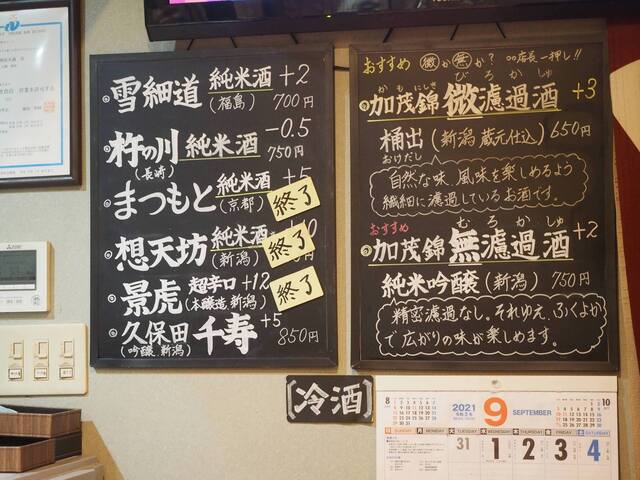 雪細道 純米酒 +2
(福島) 700円
杵の川 純米酒 -0.5
(長崎) 750円
まつもと 純米酒 +5
(京都) 終了
想天坊 純米酒
(新潟) 終了
景虎 超辛口 +12
(本醸造.新潟) 終了
久保田 千寿 +5
(吟醸.新潟) 850円
おすすめ 微か無か? 店長一押し!!
かもにしき びろかしゅ
加茂錦 微濾過酒 +3
桶出 (新潟 蔵元仕込) 650円
おけだし
自然な味、風味を楽しめるよう
繊細に濾過しているお酒です。
おすすめ むろかしゅ
加茂錦 無濾過酒 +2
純米吟醸 (新潟) 750円
精密濾過なし。それゆえ、ふくよか
で広がりの味が楽しめます。
[冷酒]
8 2021 9 SEPTEMBER 10
日 SUNDAY 月 MONDAY 火 TUESDAY 水 WEDNESDAY 木 THURSDAY 金 FRIDAY 土 SATURDAY
31 1 2 3 4